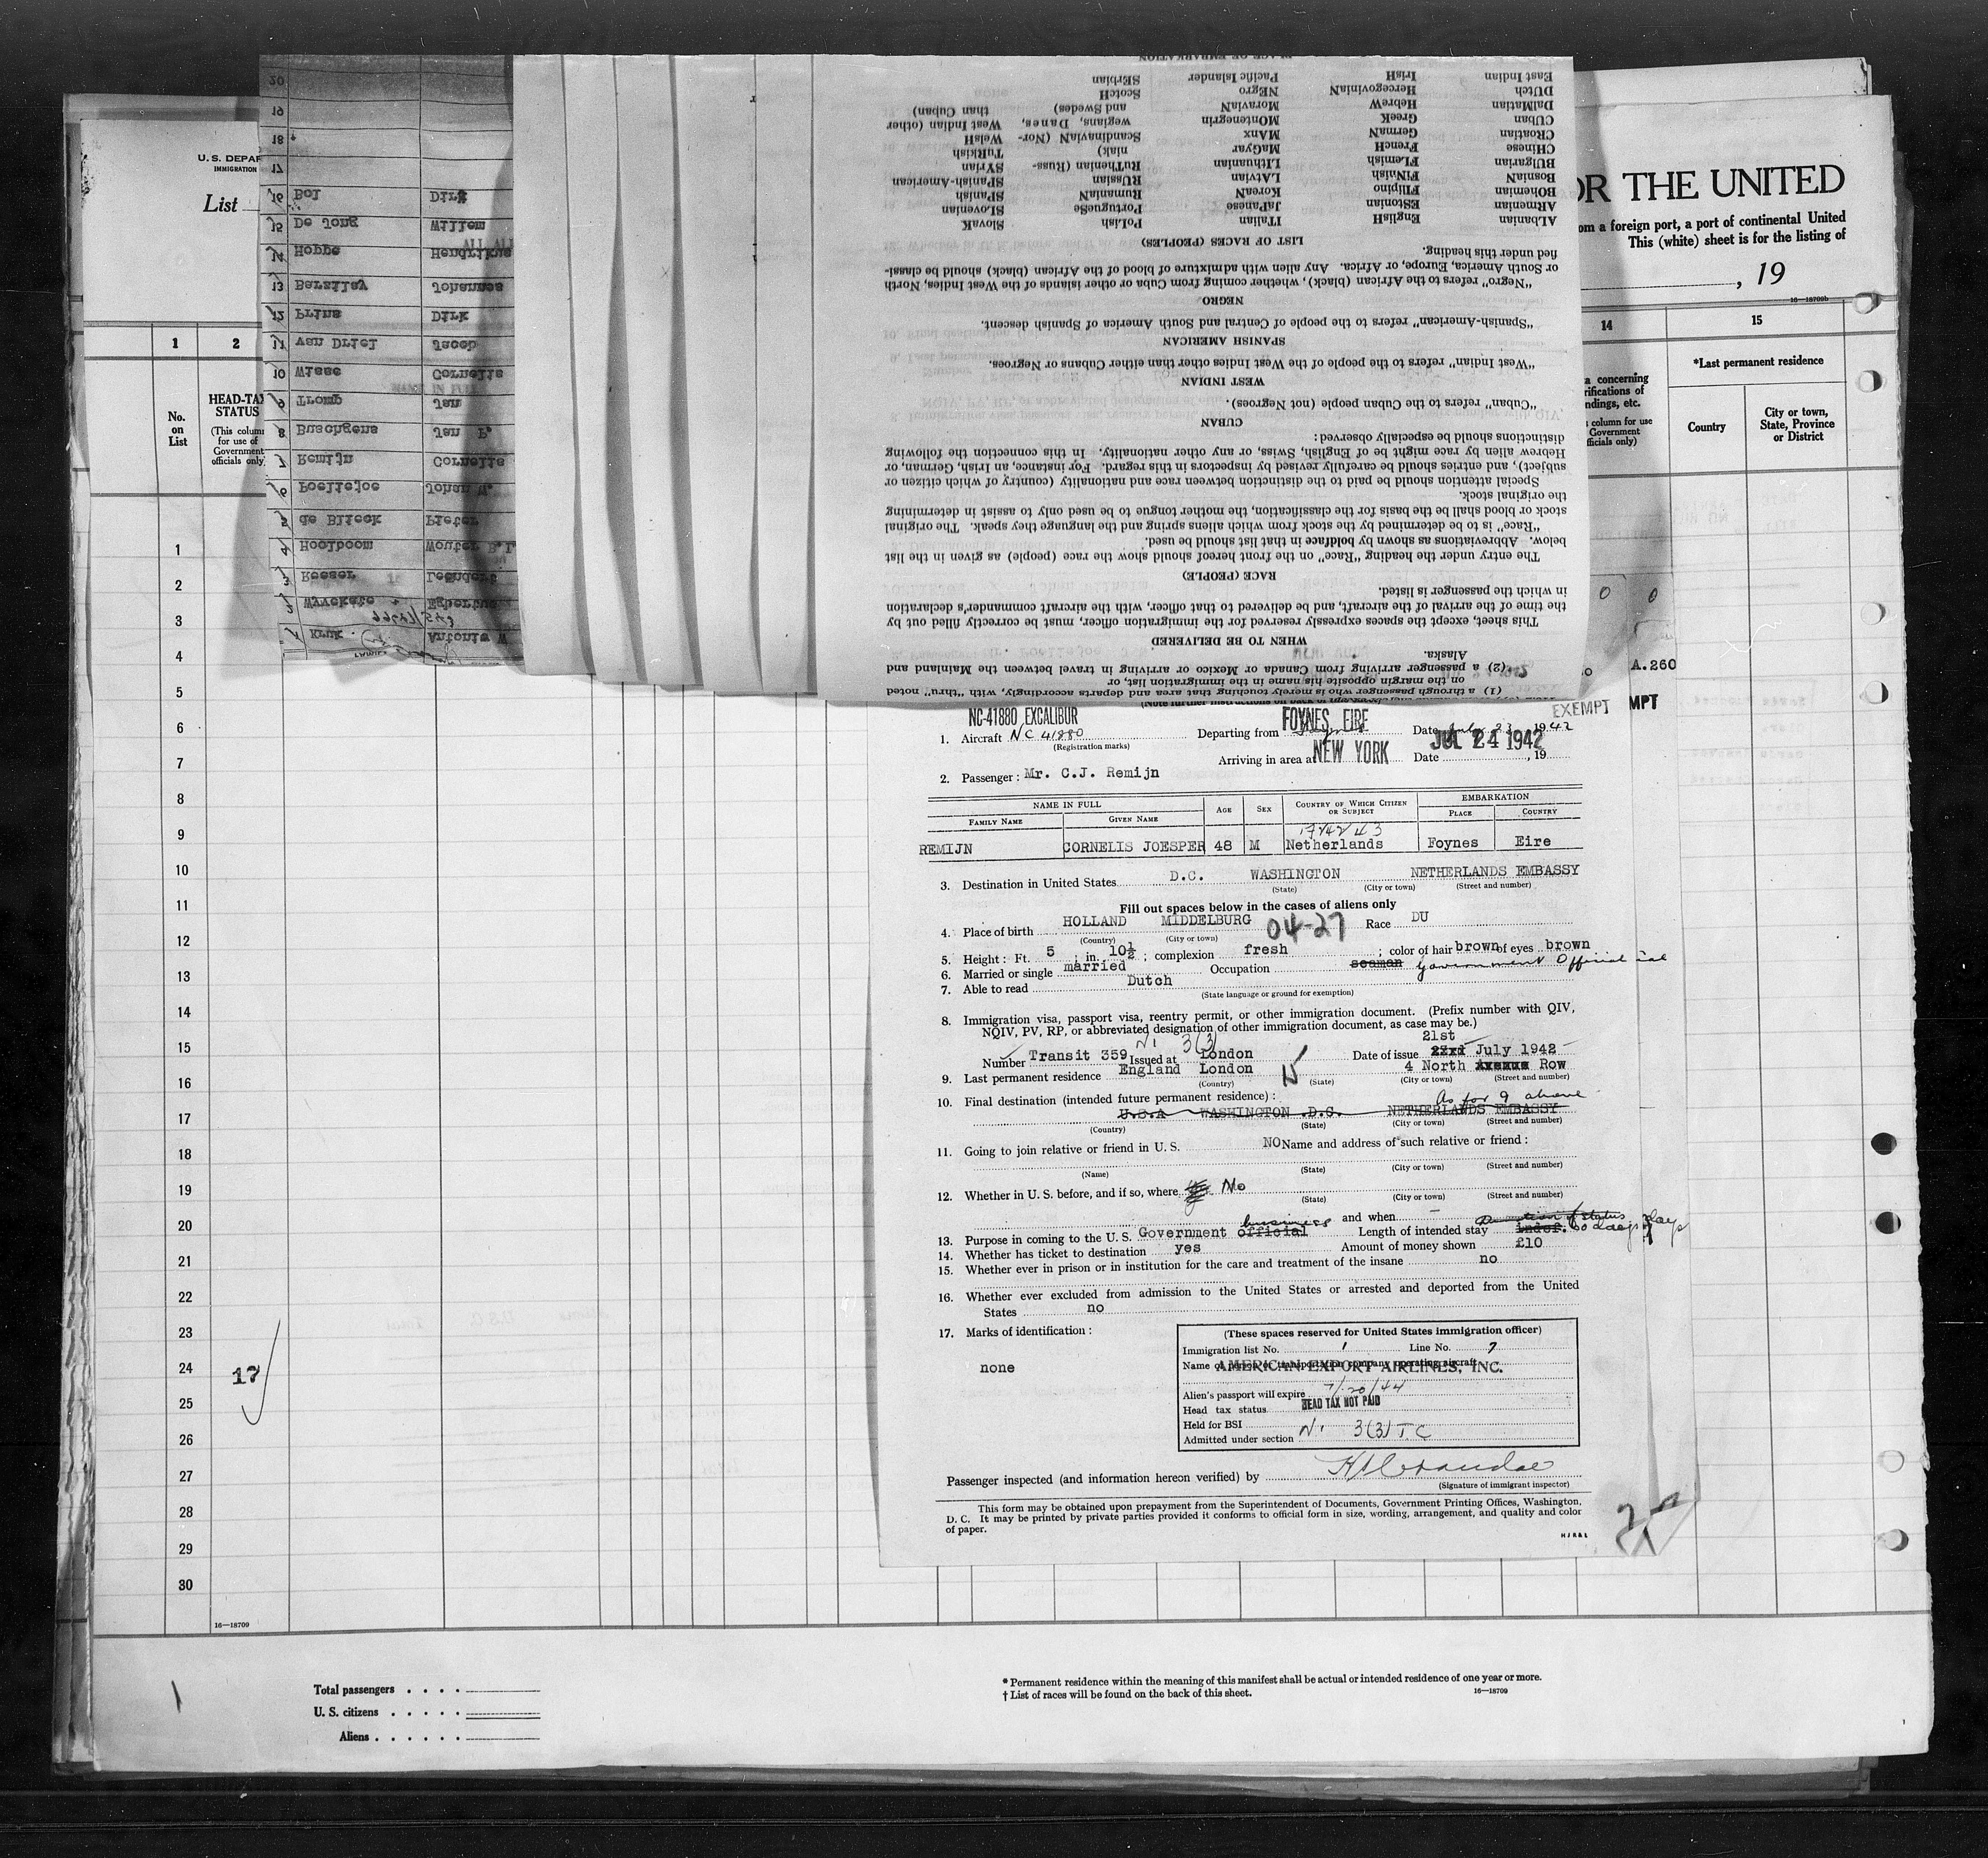 U. S. DEPAR
IMMIGRATION
List
OR THE UNITED
om a foreign port, a port of continental United
This (white) sheet is for the listing of
, 19
16—18709b
1
2
14
15
No.
on
List
HEAD-TAX
STATUS
(This column
for use of
Government
officials only)
a concerning
rifications of
ndings, etc.
column for use
Government
fficials only)
*Last permanent residence
Country
City or town,
State, Province
or District
20
19
18
17
16 Bol Dirk
15 De Jong Willem
14 Hoppe Hendrikus
13 Barzilay Johannes
12 Prins Dirk
11 van Driel Jacob
10 Wisse Cornelis
9 Tromp Jan
8 Buschgens Jan P.
7 Remijn Cornelis
6 Poeltejoe Johan W.
5 de Blieck Pieter
4 Hoolboom Wouter B.I.
3 Reeser Leendert
2 Wyvekate Egbertus
1 Kruk Antonie W
(1) a through passenger who is merely touching that area and departs accordingly, with "thru" noted
on the margin opposite his name in the immigration list, or
(2) a passenger arriving from Canada or Mexico or arriving in travel between the Mainland and
Alaska.
WHEN TO BE DELIVERED
This sheet, except the spaces expressly reserved for the immigration officer, must be correctly filled out by
the time of the arrival of the aircraft, and be delivered to that officer, with the aircraft commander's declaration
in which the passenger is listed.
RACE (PEOPLE)
The entry under the heading "Race" on the front hereof should show the race (people) as given in the list
below. Abbreviations as shown by boldface in that list should be used.
"Race" is to be determined by the stock from which aliens spring and the language they speak. The original
stock or blood shall be the basis for the classification, the mother tongue to be used only to assist in determining
the original stock.
Special attention should be paid to the distinction between race and nationality (country of which citizen or
subject), and entries should be carefully revised by inspectors in this regard. For instance, an Irish, German, or
Hebrew alien by race might be of English, Swiss, or any other nationality. In this connection the following
distinctions should be especially observed:
CUBAN
"Cuban" refers to the Cuban people (not Negroes).
WEST INDIAN
"West Indian" refers to the people of the West Indies other than either Cubans or Negroes.
SPANISH AMERICAN
"Spanish-American" refers to the people of Central and South America of Spanish descent.
NEGRO
"Negro" refers to the African (black), whether coming from Cuba or other islands of the West Indies, North
or South America, Europe, or Africa. Any alien with admixture of blood of the African (black) should be classi-
fied under this heading.
LIST OF RACES (PEOPLES)
ALbanian EnglisH ITalian PoLish SlovaK
ARmenian EStonian JaPanese PortugueSe SLovenian
Bohemian FIlipino KoreaN RumaniaN SPanish
BosniaN FINnish LAtvian RUssian SPanish-American
BUlgarian FLemish LIthuanian RuThenian (Russ- SYrian
CHinese FrencH MaGyar niak) TuRkish
CRoatian GermaN MAnx ScandinaviaN (Nor- WelsH
CUban GreeK MOntenegrin wegians, Danes, West Indian (other
DalMatian HebreW MoraviaN and Swedes) than Cuban)
DUtch HercegoviniaN NEgro ScotcH
East Indian IrisH Pacific Islander SErbian
A.260
EXEMPT MPT
NC-41880 EXCALIBUR
FOYNES, EIRE
1. Aircraft NC 41880 Departing from Date July 23, 1942
(Registration marks)
JUL 24 1942
Arriving in area at NEW YORK Date , 19
2. Passenger: Mr. C.J. Remijn
NAME IN FULL AGE SEX COUNTRY OF WHICH CITIZEN OR SUBJECT EMBARKATION
FAMILY NAME GIVEN NAME PLACE COUNTRY
REMIJN CORNELIS JOESPER 48 M Netherlands Foynes Eire
3. Destination in United States D.C. WASHINGTON NETHERLANDS EMBASSY
(State) (City or town) (Street and number)
Fill out spaces below in the cases of aliens only
4. Place of birth HOLLAND MIDDELBURG 04-27 Race DU
(Country) (City or town)
5. Height: Ft. 5 ; in. 10½ ; complexion fresh ; color of hair brown of eyes brown
6. Married or single married Occupation seaman Government Official
7. Able to read Dutch
(State language or ground for exemption)
8. Immigration visa, passport visa, reentry permit, or other immigration document. (Prefix number with QIV,
NQIV, PV, RP, or abbreviated designation of other immigration document, as case may be.)
N1 3(3) 21st
Number Transit 359 Issued at London Date of issue 22rd July 1942
9. Last permanent residence England London 4 North Avenue Row
(Country) (State) (City or town) (Street and number)
10. Final destination (intended future permanent residence): As for 9 above
U.S.A WASHINGTON .D.C. NETHERLANDS EMBASSY
(Country) (State) (City or town) (Street and number)
11. Going to join relative or friend in U. S. NO Name and address of such relative or friend:
(Name) (State) (City or town) (Street and number)
12. Whether in U. S. before, and if so, where No
(State) (City or town) (Street and number)
and when — Duration of status
13. Purpose in coming to the U. S. Government official business Length of intended stay indef. 60 days
14. Whether has ticket to destination yes Amount of money shown £10
15. Whether ever in prison or in institution for the care and treatment of the insane no
16. Whether ever excluded from admission to the United States or arrested and deported from the United
States no
17. Marks of identification:
none
(These spaces reserved for United States immigration officer)
Immigration list No. 1 Line No. 7
Name of person or transportation company operating aircraft
AMERICAN EXPORT AIRLINES, INC.
Alien's passport will expire 7/20/44
Head tax status HEAD TAX NOT PAID
Held for BSI
Admitted under section N1 3(3) T.C
Passenger inspected (and information hereon verified) by
(Signature of immigrant inspector)
This form may be obtained upon prepayment from the Superintendent of Documents, Government Printing Offices, Washington,
D. C. It may be printed by private parties provided it conforms to official form in size, wording, arrangement, and quality and color
of paper.
1
2
3
4
5
6
7
8
9
10
11
12
13
14
15
16
17
18
19
20
21
22
23
24
25
26
27
28
29
30
17
16—18709
Total passengers . . . .
U. S. citizens . . . . .
Aliens . . . . . .
* Permanent residence within the meaning of this manifest shall be actual or intended residence of one year or more.
† List of races will be found on the back of this sheet.
16—18709